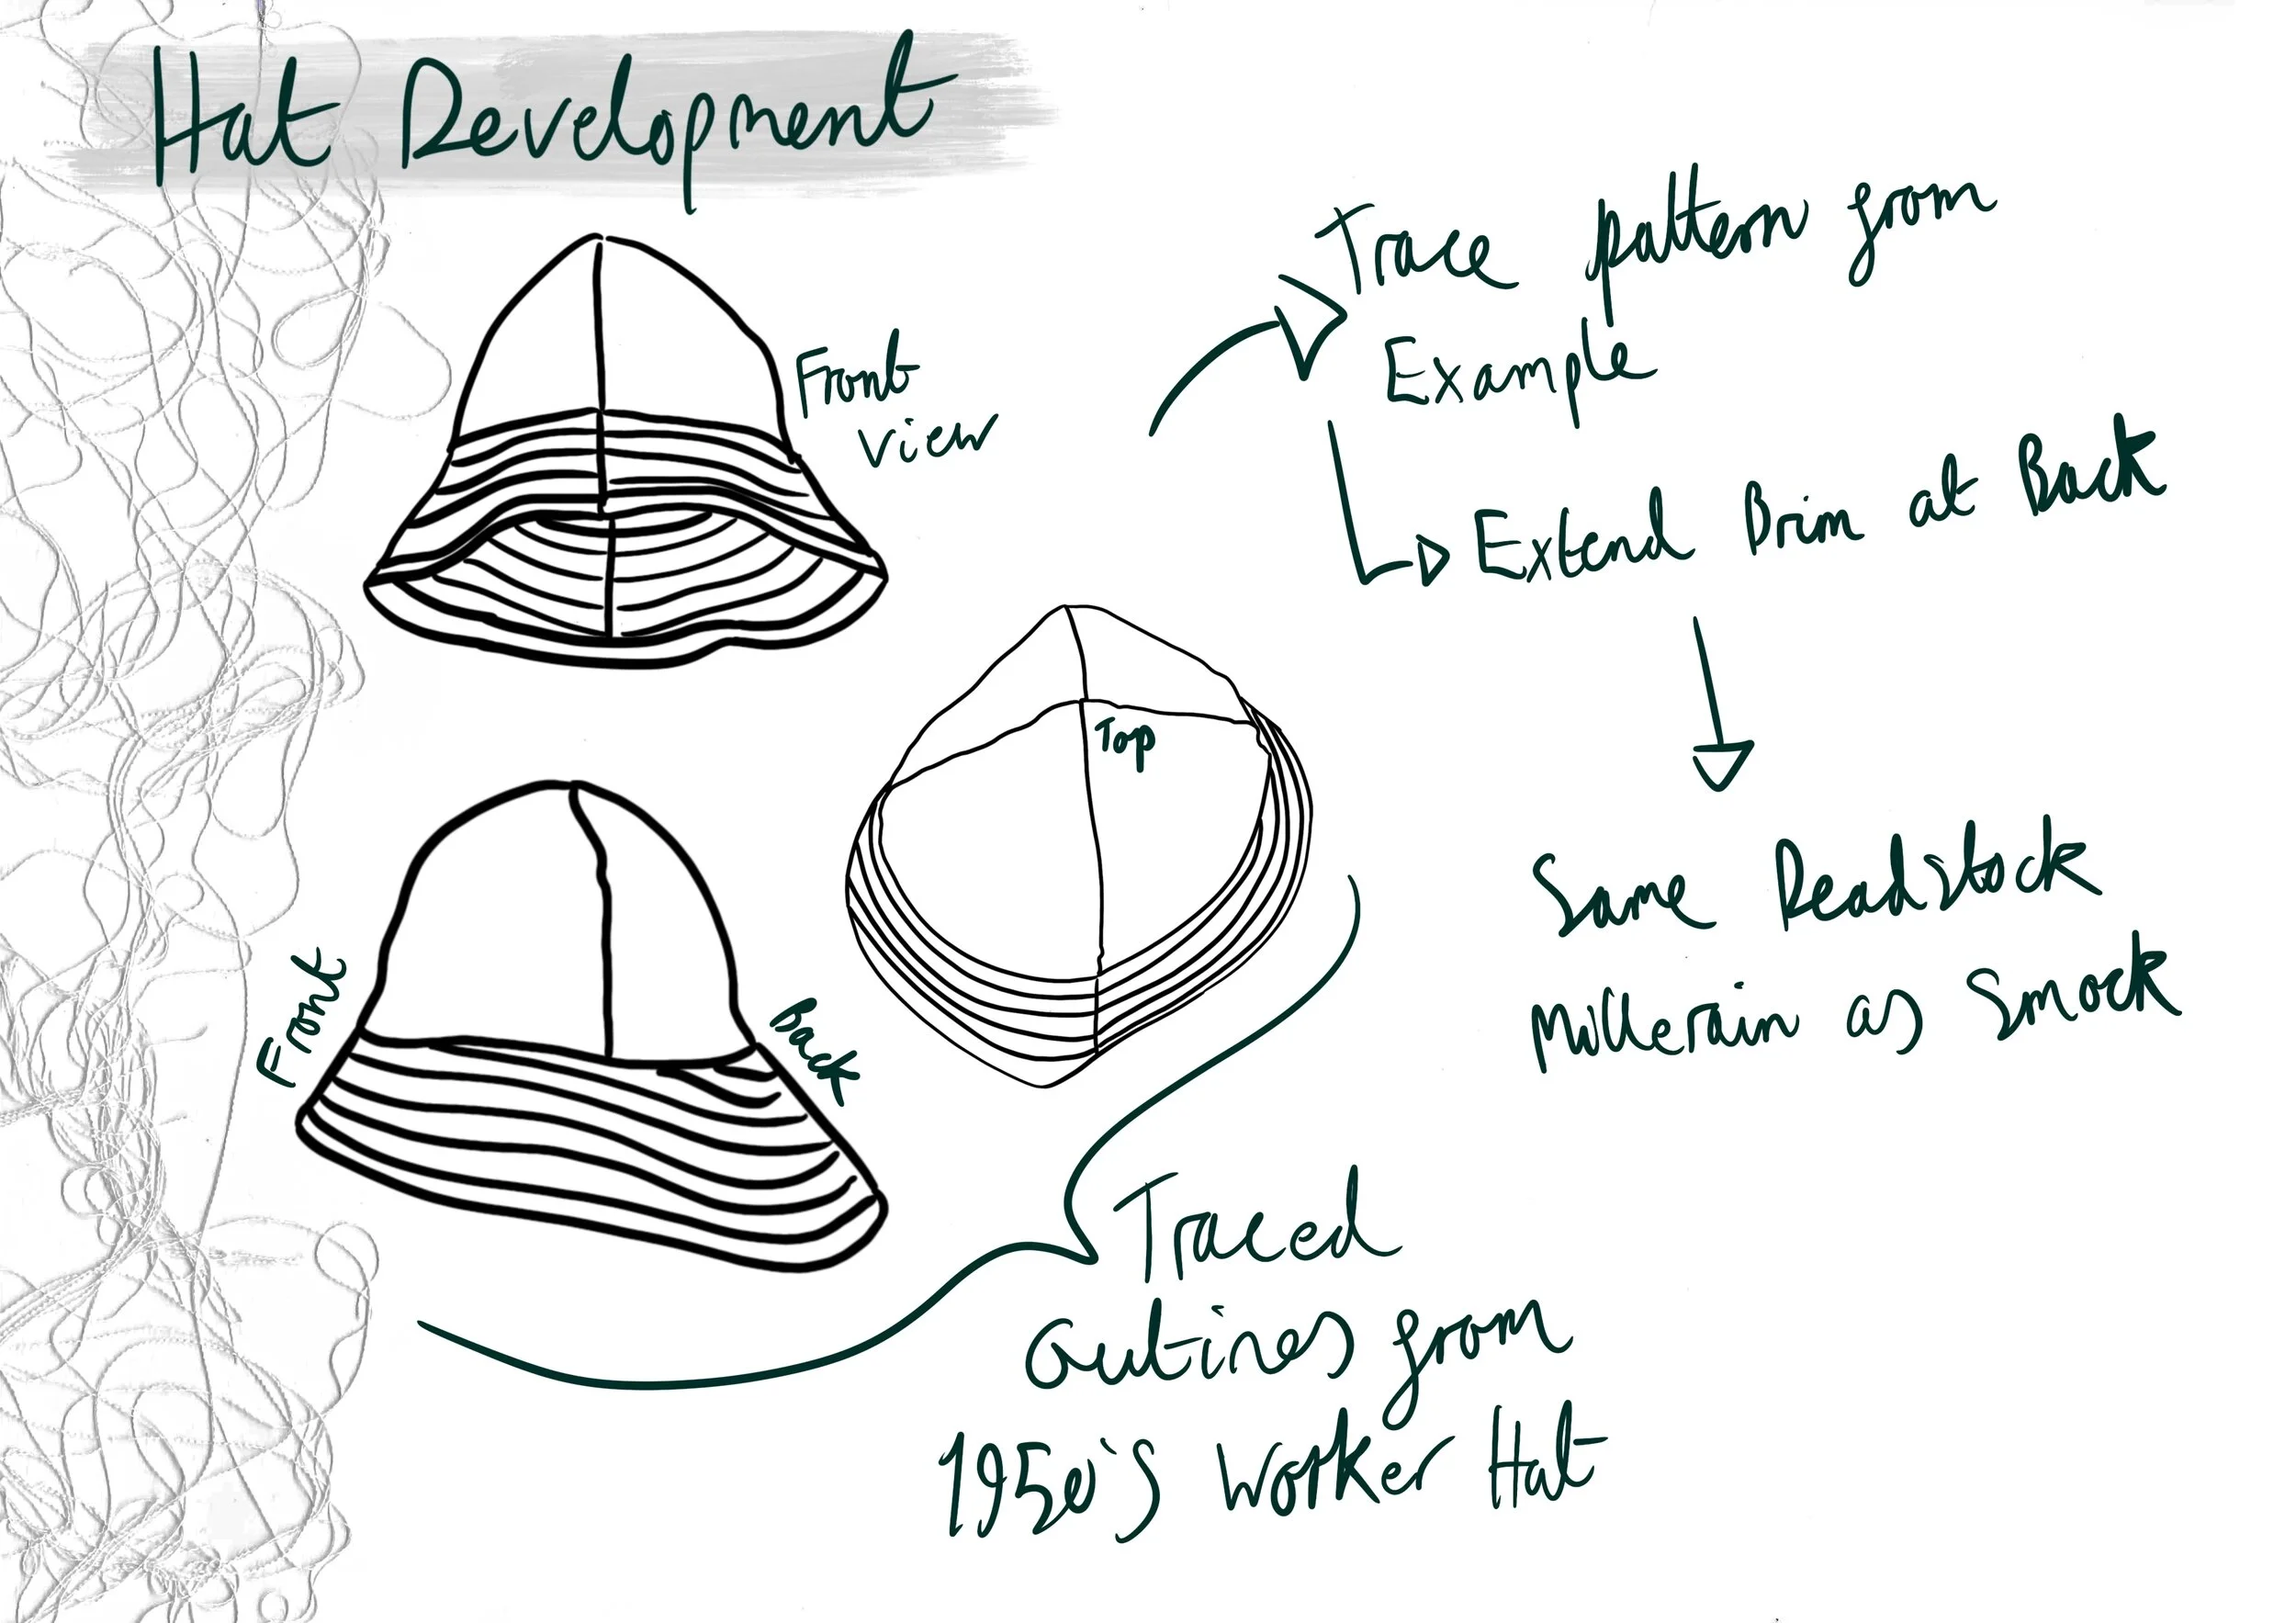 Hat Development
Front
View
Trace pattern from
Example
Extend Brim at Back
Top
Same Deadstock
Millerain as Smock
Front
Back
Traced
Outines from
1950's Worker Hat